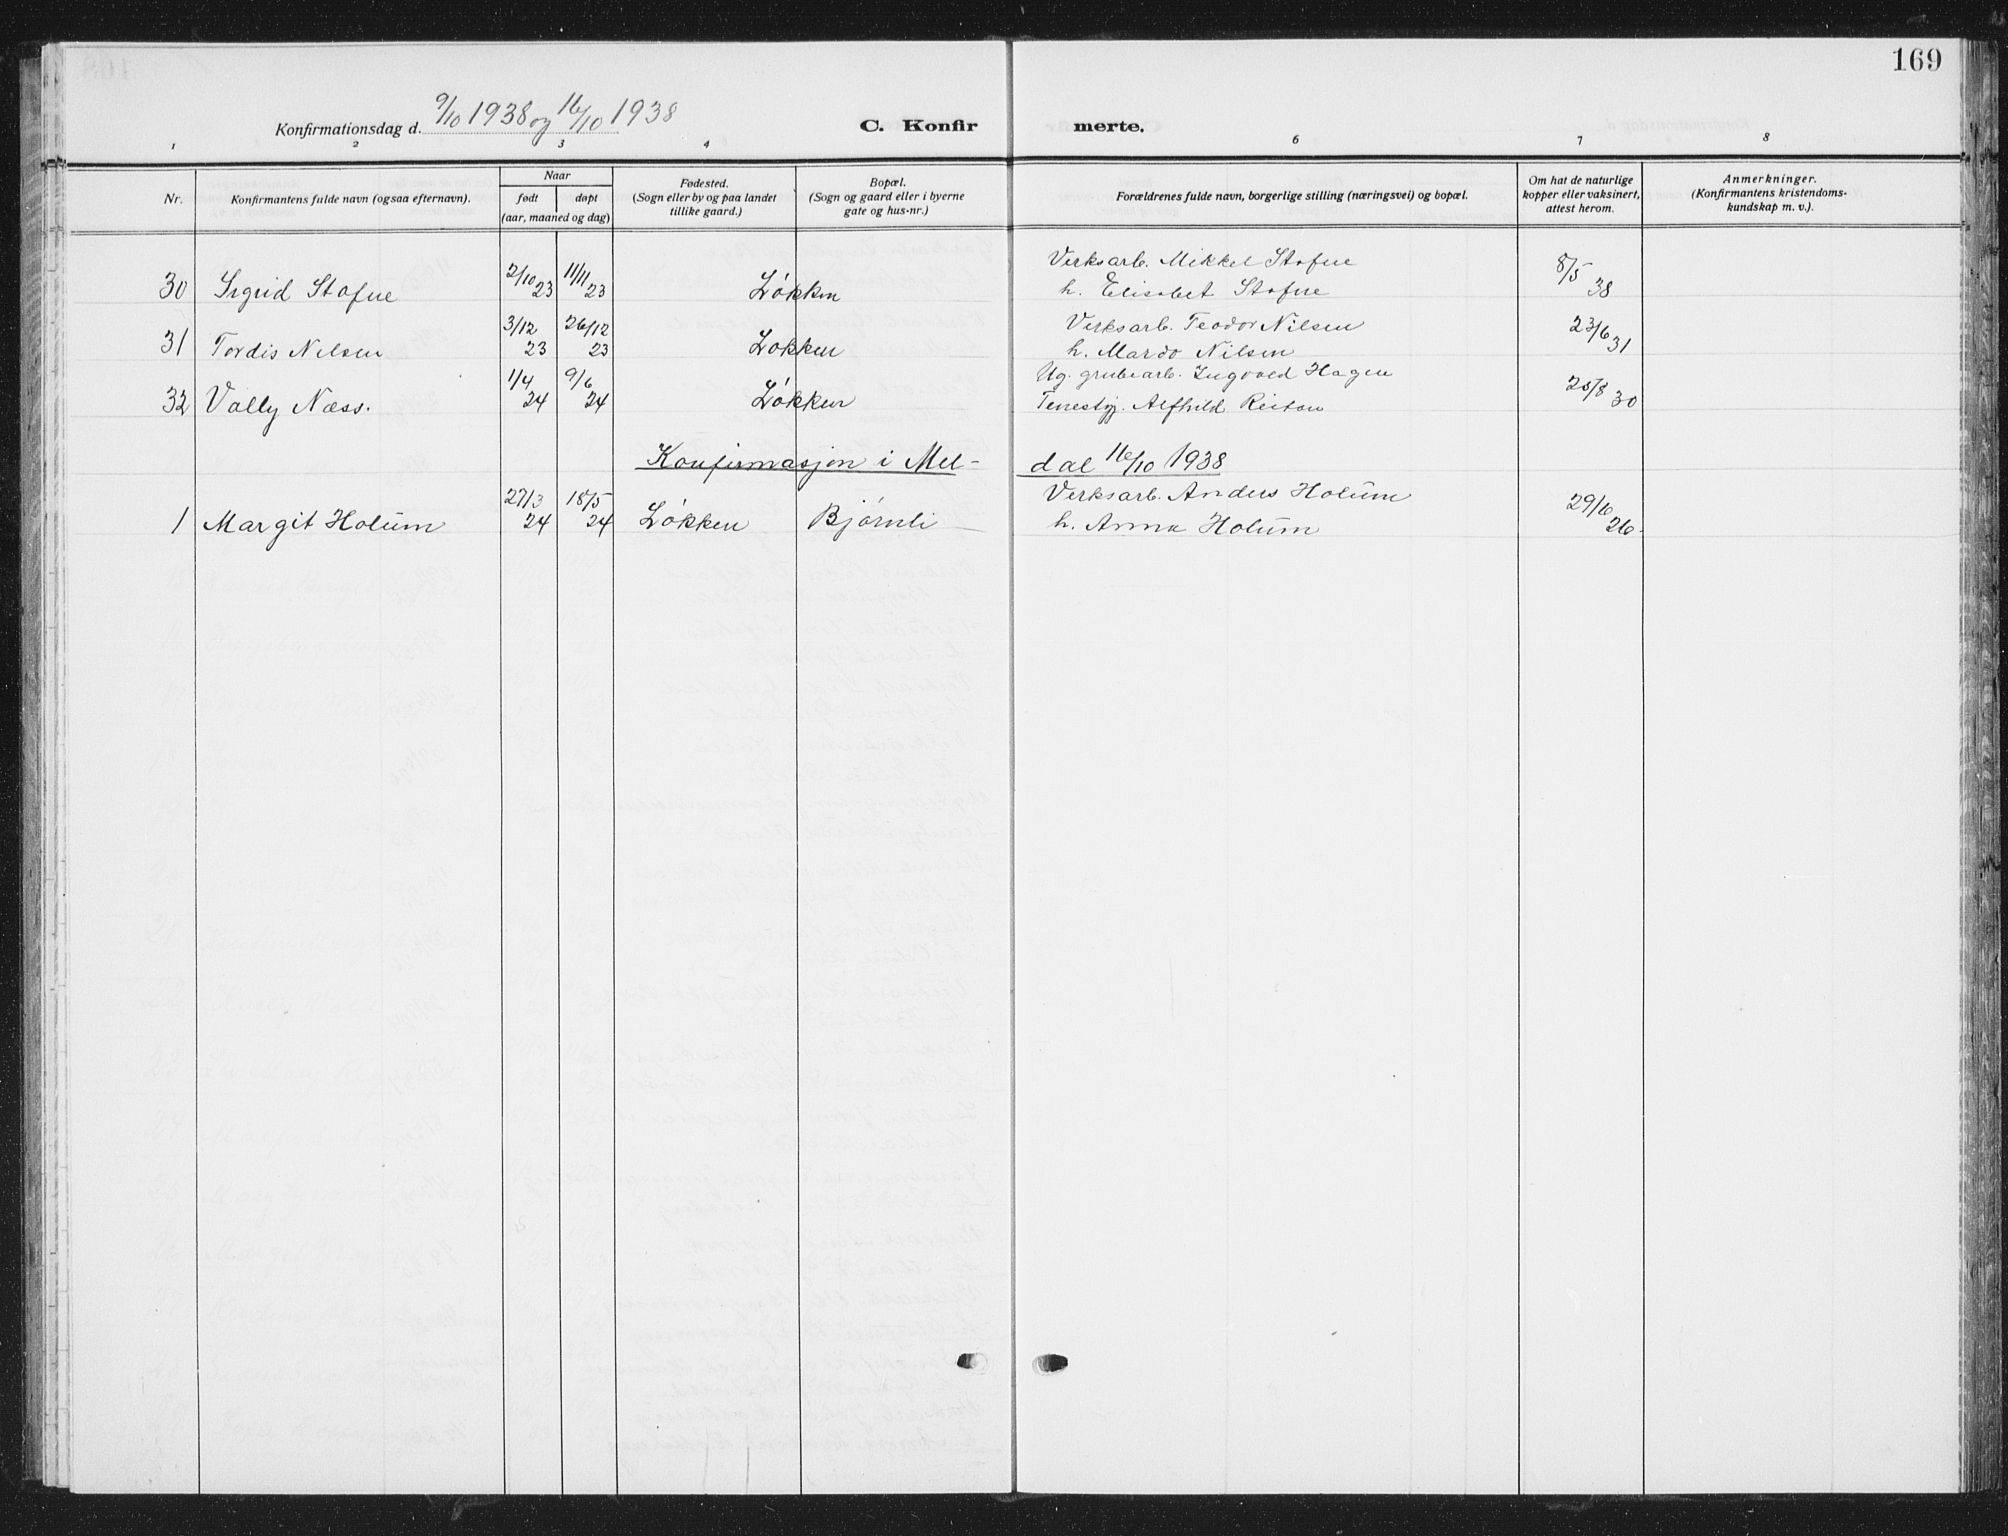 169
Konfirmationsdag d. 9/10 1938 og 16/10 1938
C. Konfirmerte.
1 2 3 4 6 7 8
Nr.
Konfirmantens fulde navn (ogsaa efternavn).
Naar
født
døpt
(aar, maaned og dag)
Fødested.
(Sogn eller by og paa landet
tillike gaard.)
Bopæl.
(Sogn og gaard eller i byerne
gate og hus-nr.)
Forældrenes fulde navn, borgerlige stilling (næringsvei) og bopæl.
Om hat de naturlige
kopper eller vaksinert,
attest herom.
Anmerkninger.
(Konfirmantens kristendoms-
kundskap m. v.).
30 Sigrid Stofne 2/10 23 11/11 23 Løkken Verksarb. Mikkel Stofne 8/5 38
h. Elisabet Stofne
31 Tordis Nilsen 3/12 23 26/12 23 Løkken Verksarb. Teodor Nilsen 23/6 31
h. Mardo Nilsen
32 Vally Næss. 1/4 24 9/6 24 Løkken Ug. grubearb. Ingvald Hagen 30
Tenestpj. Alfhild Reitan
Konfirmasjon i Mel-dal 16/10 1938
1 Margit Holum 27/3 24 18/5 24 Løkken Bjørnli Verksarb. Anders Holum 26
h. Anna Holum